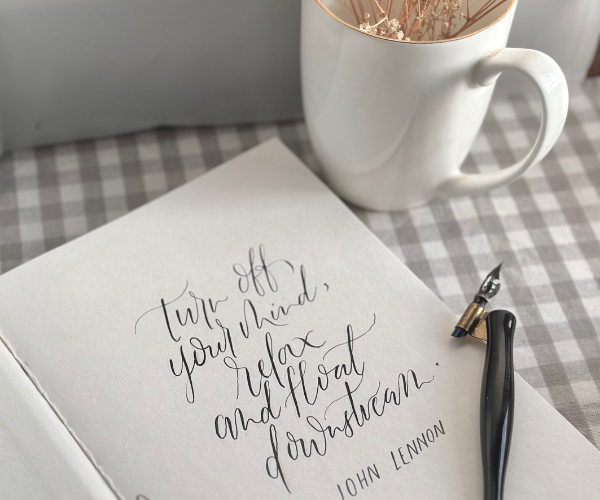 turn off
your mind,
relax
and float
downstream.
JOHN LENNON